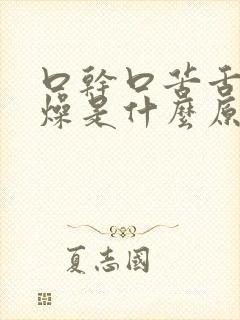 口幹口苦舌
燥是什麼原
夏志國